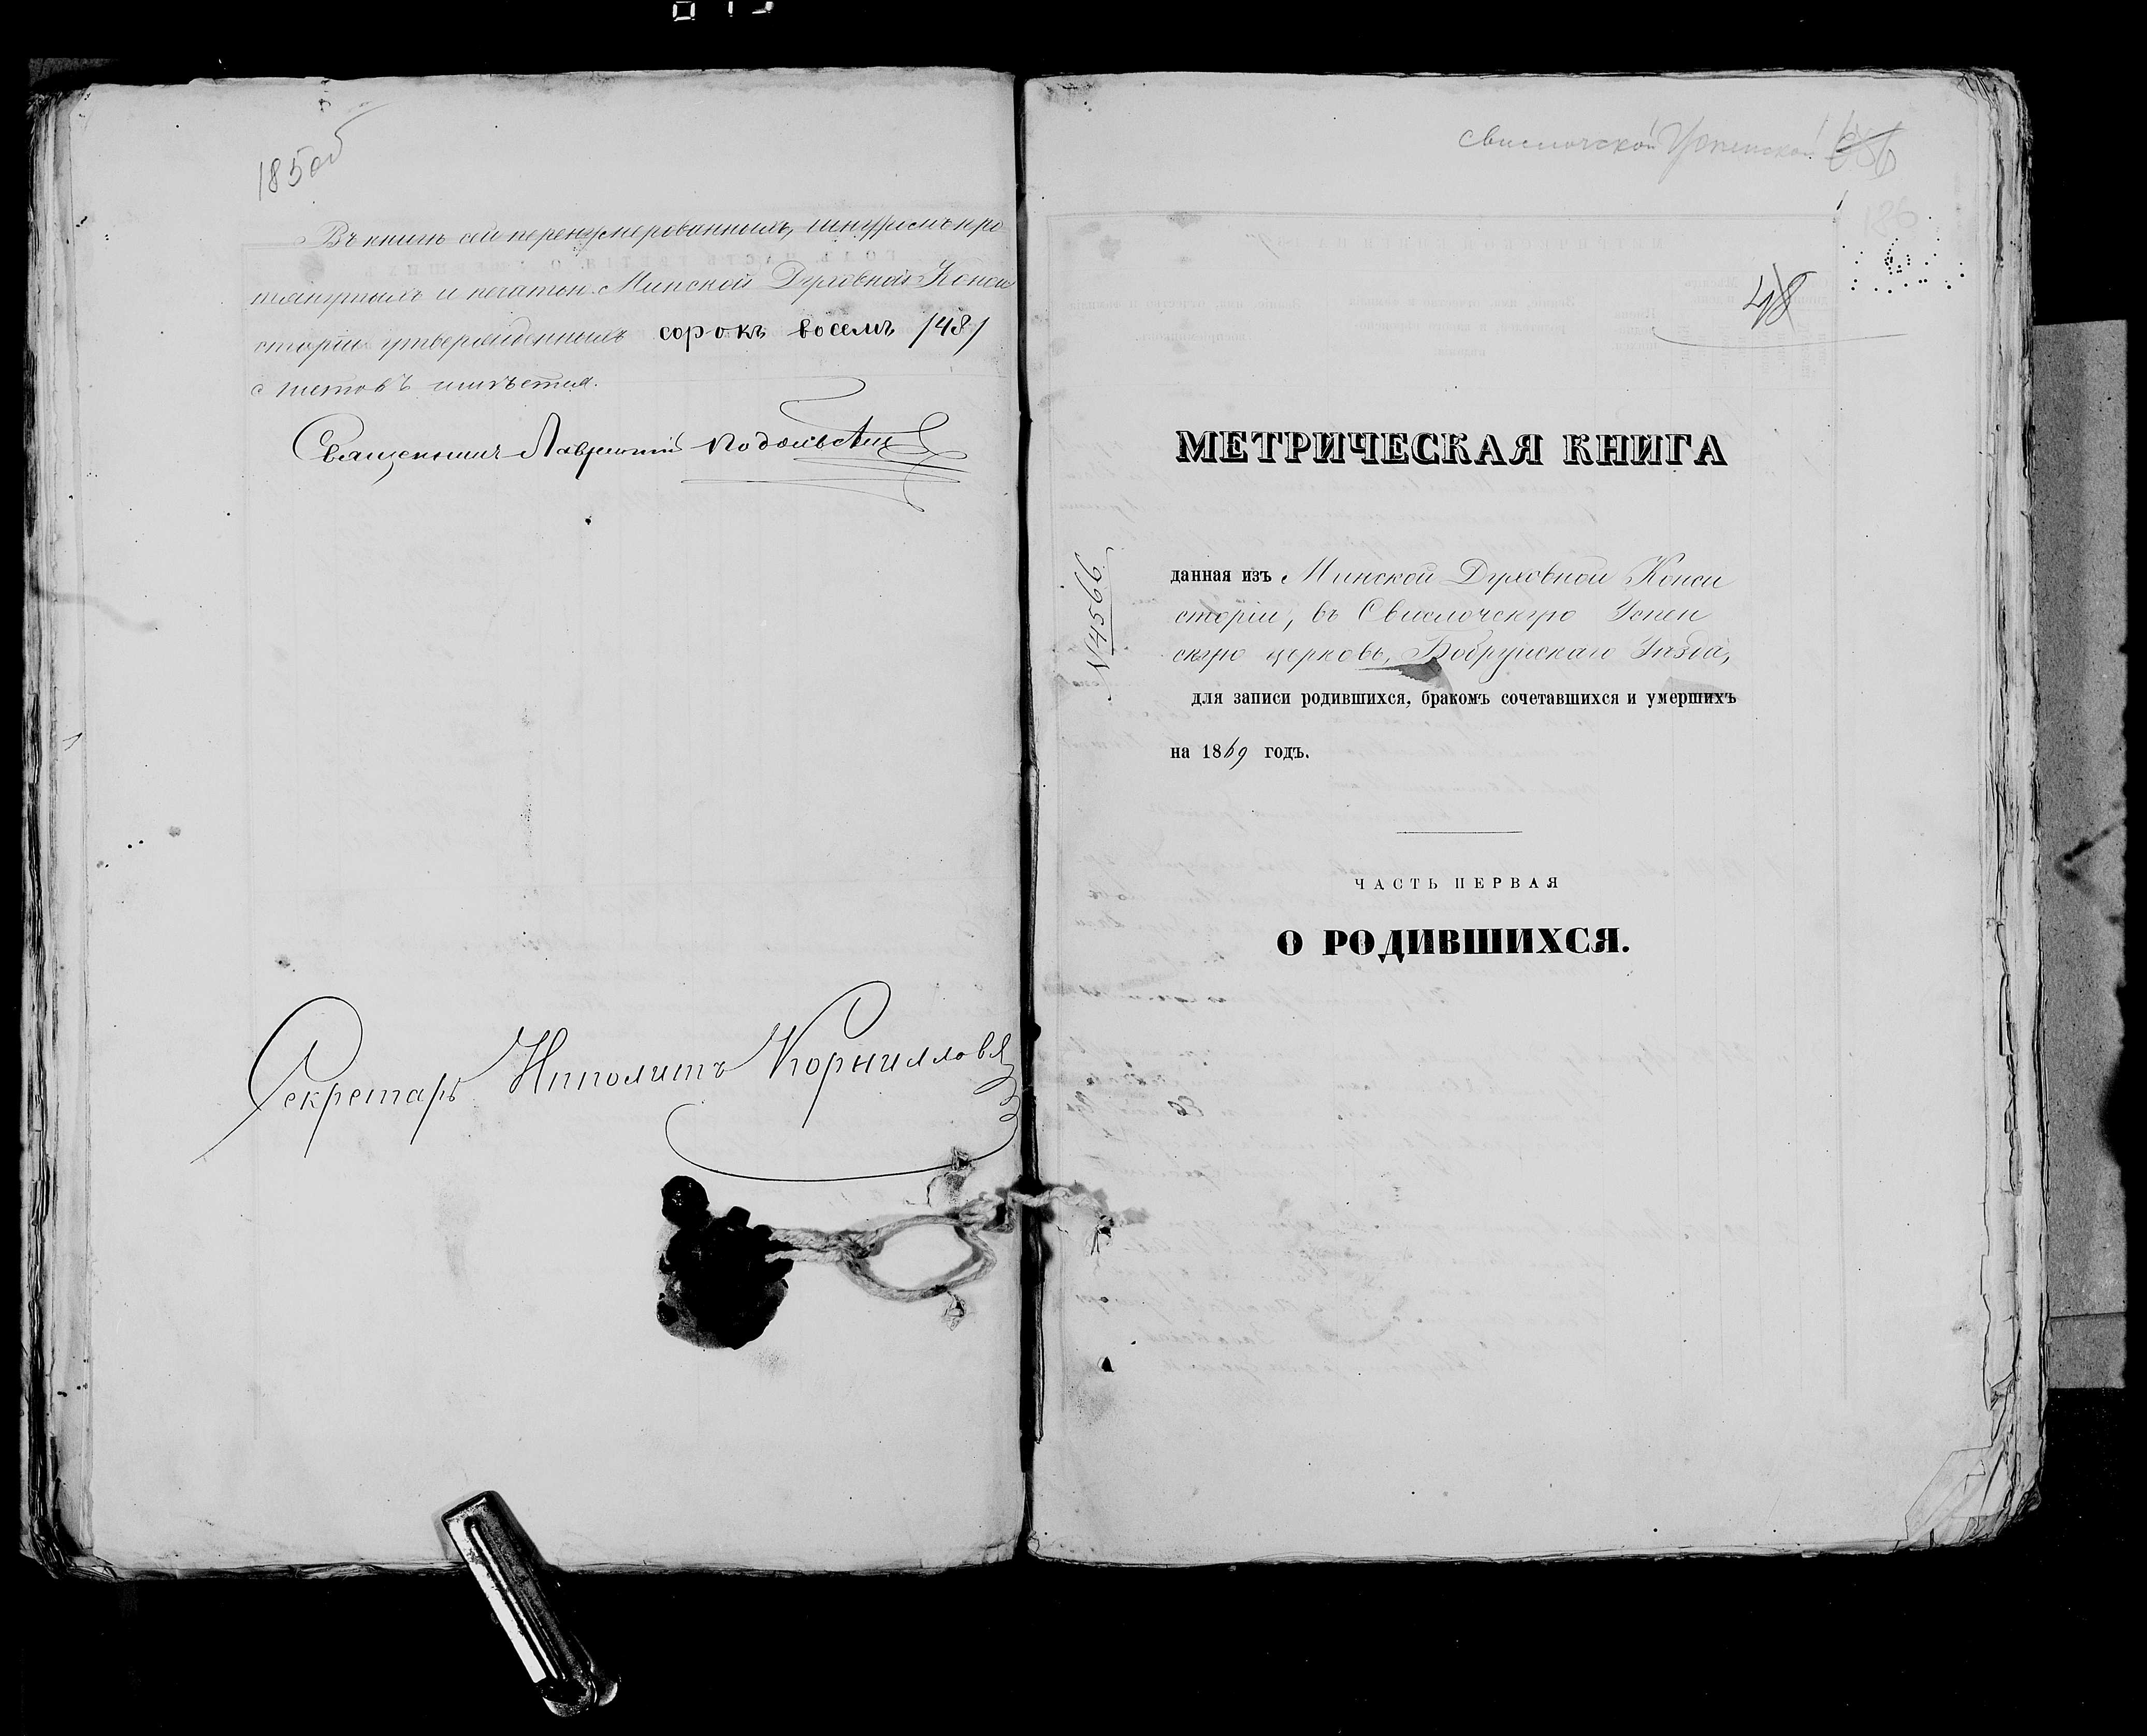 185об
Въ книгѣ сей перенумерованныхъ, шнуромъ про
тянутыхъ и печатью Минской Духовной Конси
сторіи утвержденныхъ сорокъ восемь /48/
листовъ имѣется.
Священникъ Лаврентій Подольскій
Секретарь Ипполитъ Корниллов
Свислочской Успенской
186
48
МЕТРИЧЕСКАЯ КНИГА
N 4566
данная изъ Минской Духовной Конси
сторіи, въ Свислочскую Успен
скую церковь, Бобруйскаго Уѣзда,
для записи родившихся, бракомъ сочетавшихся и умершихъ
на 1869 годъ.
ЧАСТЬ ПЕРВАЯ
О РОДИВШИХСЯ.